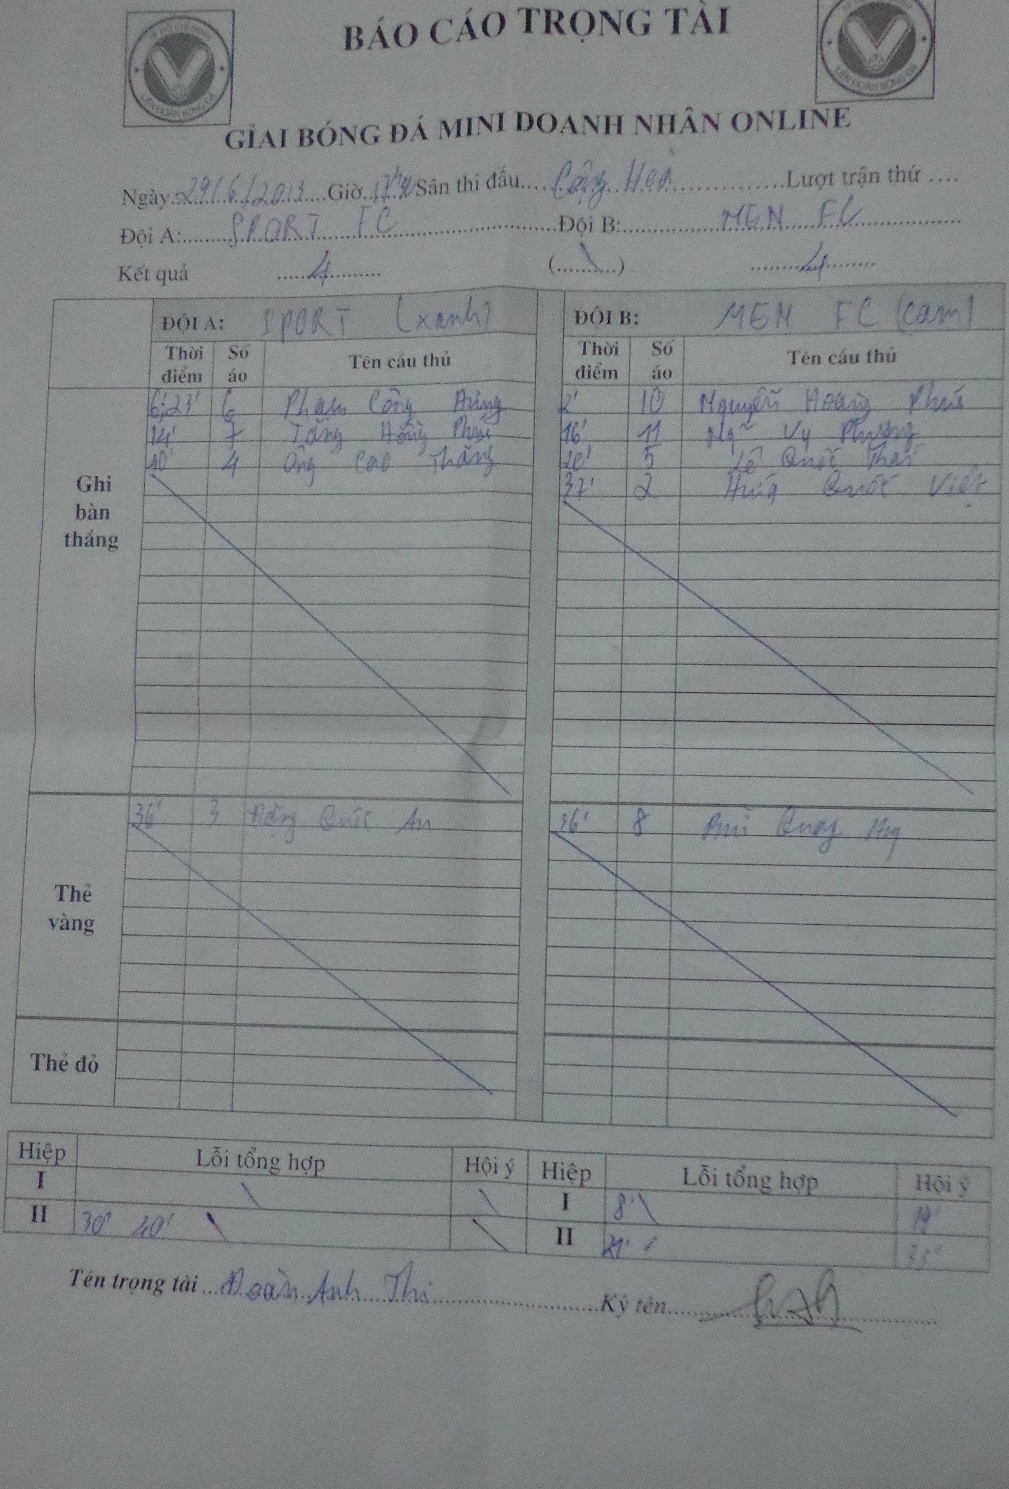 BÁO CÁO TRỌNG TÀI
LIÊN ĐOÀN BÓNG ĐÁ
LIÊN ĐOÀN BÓNG ĐÁ
GIẢI BÓNG ĐÁ MINI DOANH NHÂN ONLINE
Ngày 29/6/2013 Giờ 17h30 Sân thi đấu Cộng Hòa Lượt trận thứ ....
Đội A: SPORT FC Đội B: MEN FC
Kết quả 4 (....\....) 4
ĐỘI A: SPORT (xanh) ĐỘI B: MEN FC (cam)
Thời điểm Số áo Tên cầu thủ Thời điểm Số áo Tên cầu thủ
Ghi bàn thắng
6',23' 6 Phạm Công 2' 10 Nguyễn Hoàng
14' 7 Tăng Hồng 16' 11 Vy Phương
40' 4 Ông Cao Thăng 20' 5 Lê Quốc
37' 2 Quốc Việt
Thẻ vàng
36' 3 Đặng Quốc An 36' 8 Quang
Thẻ đỏ
Hiệp Lỗi tổng hợp Hội ý Hiệp Lỗi tổng hợp Hội ý
I \ \ I 8' \ 19'
II 30' 40' \ \ II 33'
Tên trọng tài Đoàn Anh Thi Ký tên